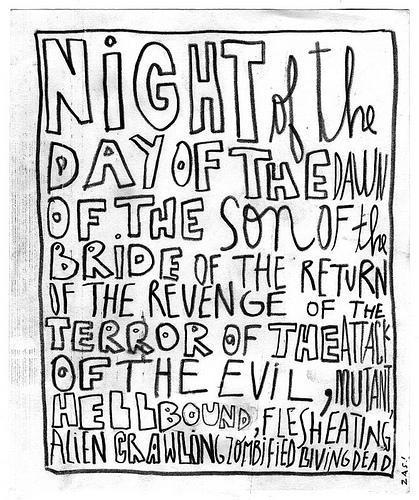 NiGHT of the
DAY OF THE DAWN
OF THE SON OF the
BRiDE OF THE RETURN
OF THE REVENGE OF THE
TERROR OF THE ATTACK
OF THE EVIL, MUTANT,
HELLBOUND, FLESHEATING,
ALIEN CRAWLING ZOMBIFIED LIVING DEAD
Z.A.F.!